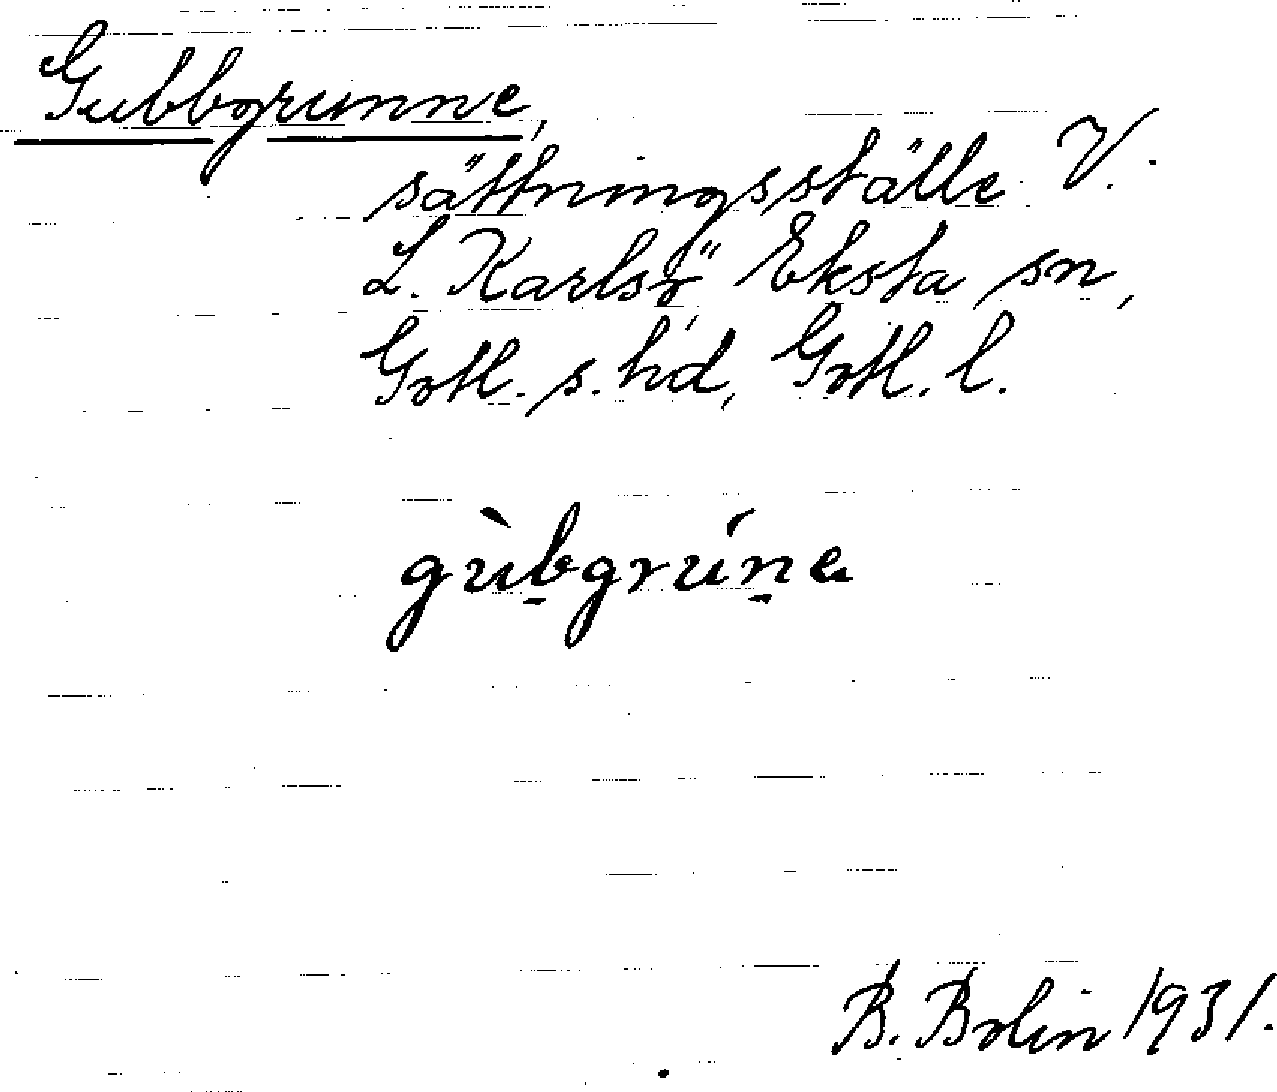 Gubbgrunne,
sättningsställe V.
L. Karlsö, Eksta sn,
Gotl. s. hd, Gotl. l.
gùb̠grún̠e
B. Bolin 1931.